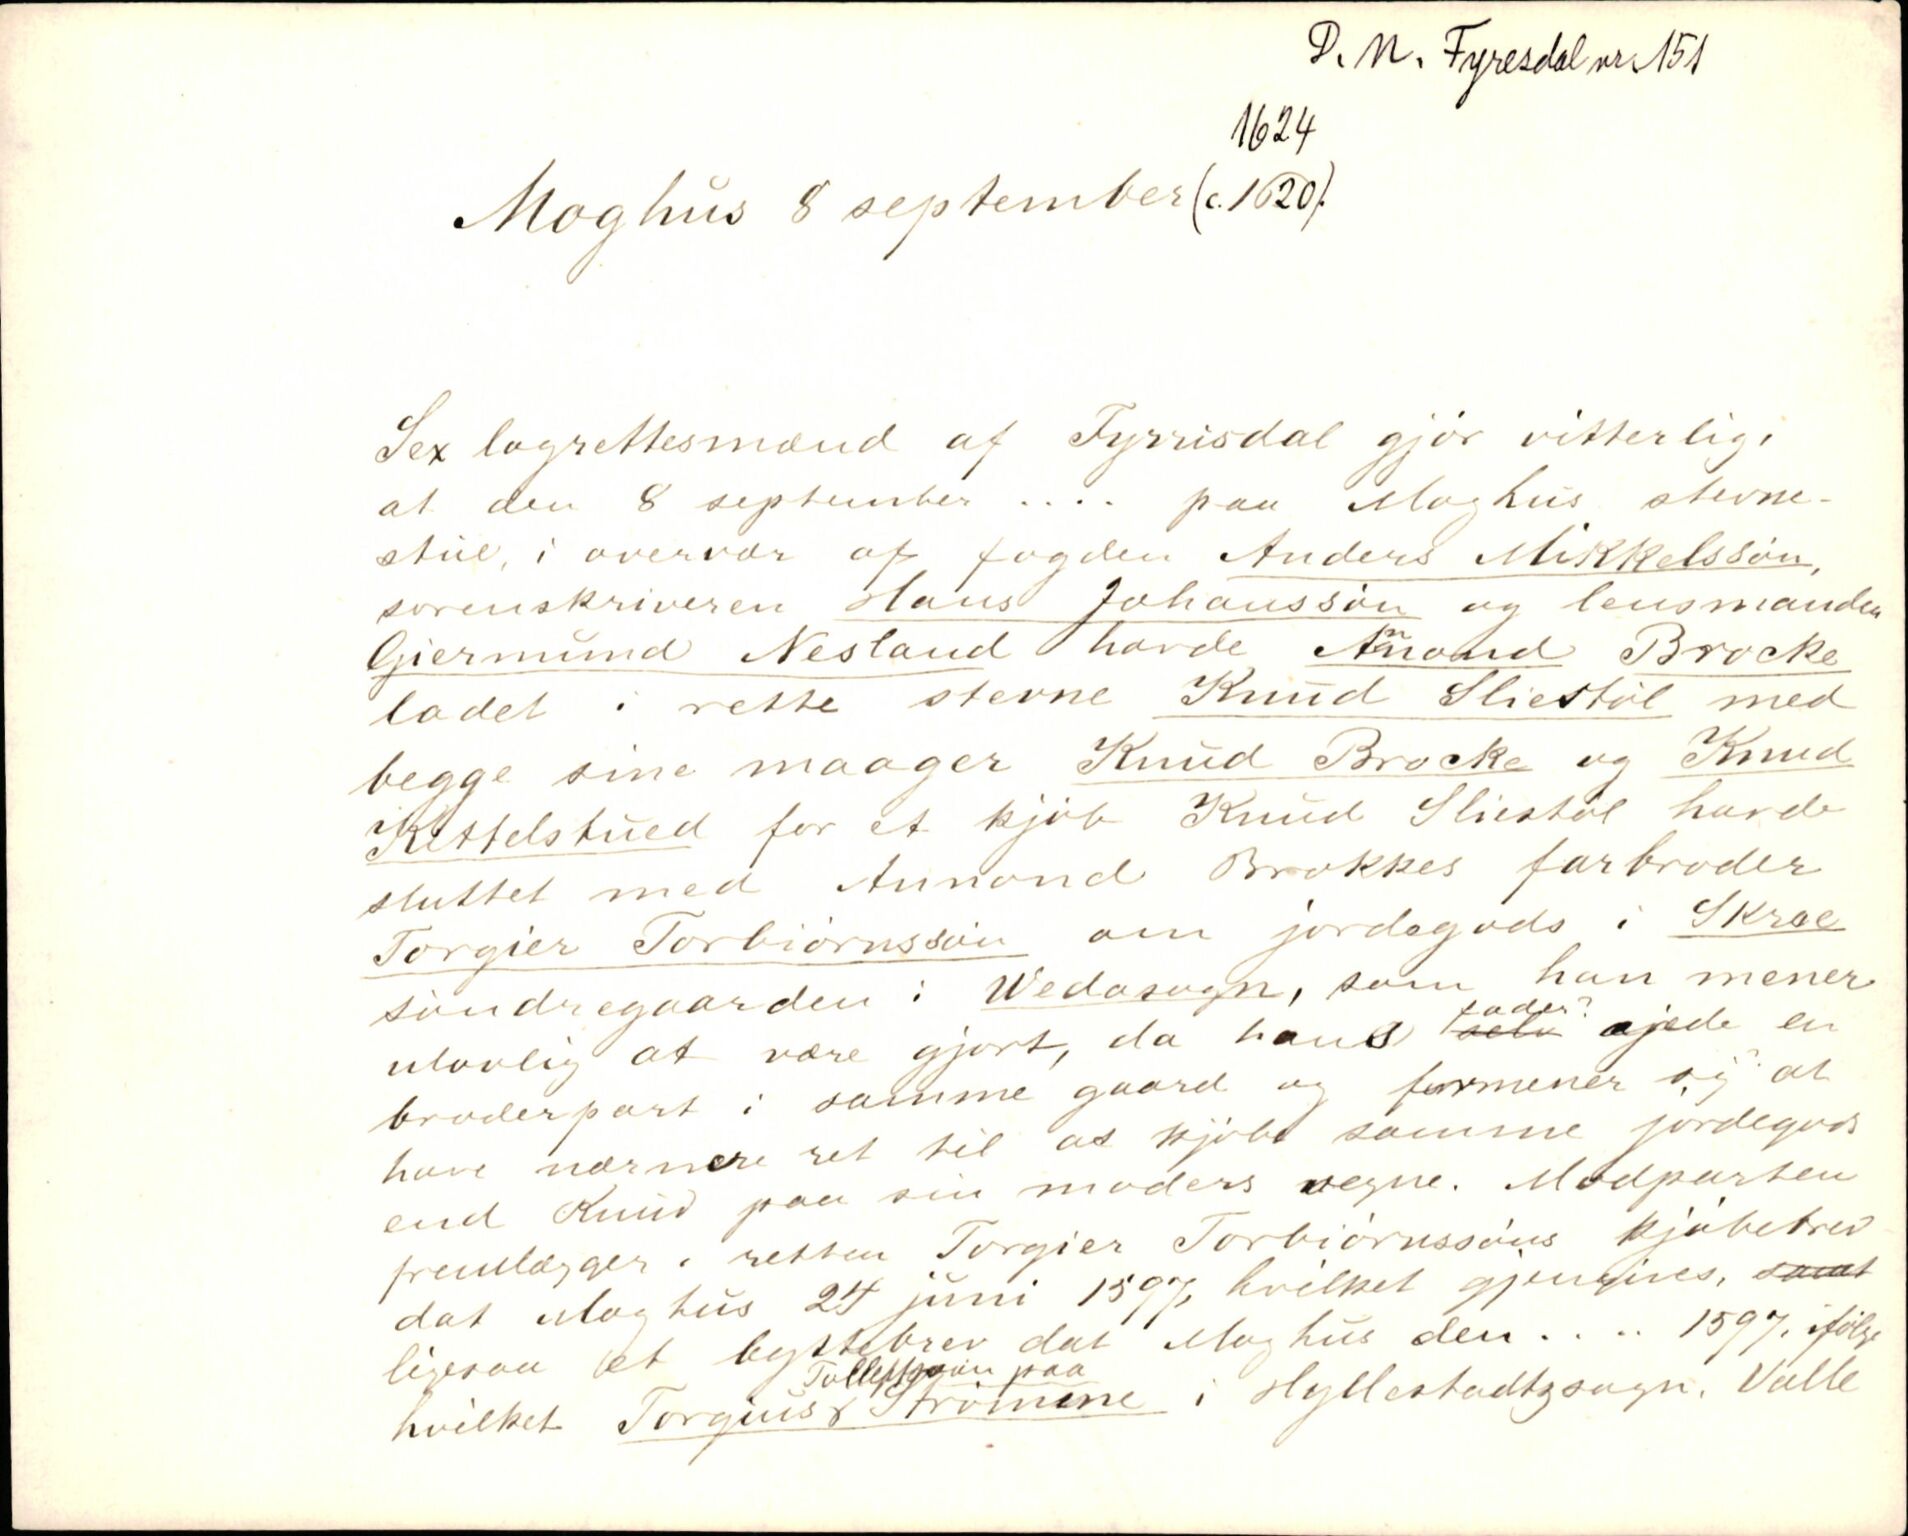 D. N. Fyresdal nr. 151
1624
Moghus 8 september (c. 1620).
Sex lagrettesmænd af Fyrrisdal gjör vitterlig,
at den 8 september .... paa Moghus stevne-
stue, i overvær af fogden Anders Mikkelssön,
sorenskriveren Hans Johanssön og lensmanden
Giermund Nesland havde Annond Brocke
ladet i rette stevne Knud Sliestöl med
begge sine maager Knud Brocke og Knud
Kettelstued for et kjöb Knud Sliestöl havde
sluttet med Annond Brokkes farbroder
Torgier Torbiörnssön om jordegods i Skrae
söndregaarden i Wedasogn, som han mener
ulovlig at være gjort, da hans selv fader? ejede en
broderpart i samme gaard og formener sig at
have nærmere ret til at kjöbe samme jordegods
end Knud paa sin moders vegne. Modparten
fremlægger i retten Torgier Torbiörnssöns kjöbebrev
dat Moghus 24 juni 1597, hvilket gjengives, samt
ligesaa et byttebrev dat Moghus den .... 1597, ifölge
Tollefssön paa
hvilket Torgius Strömme i Hyllestadtzsogn, Valle